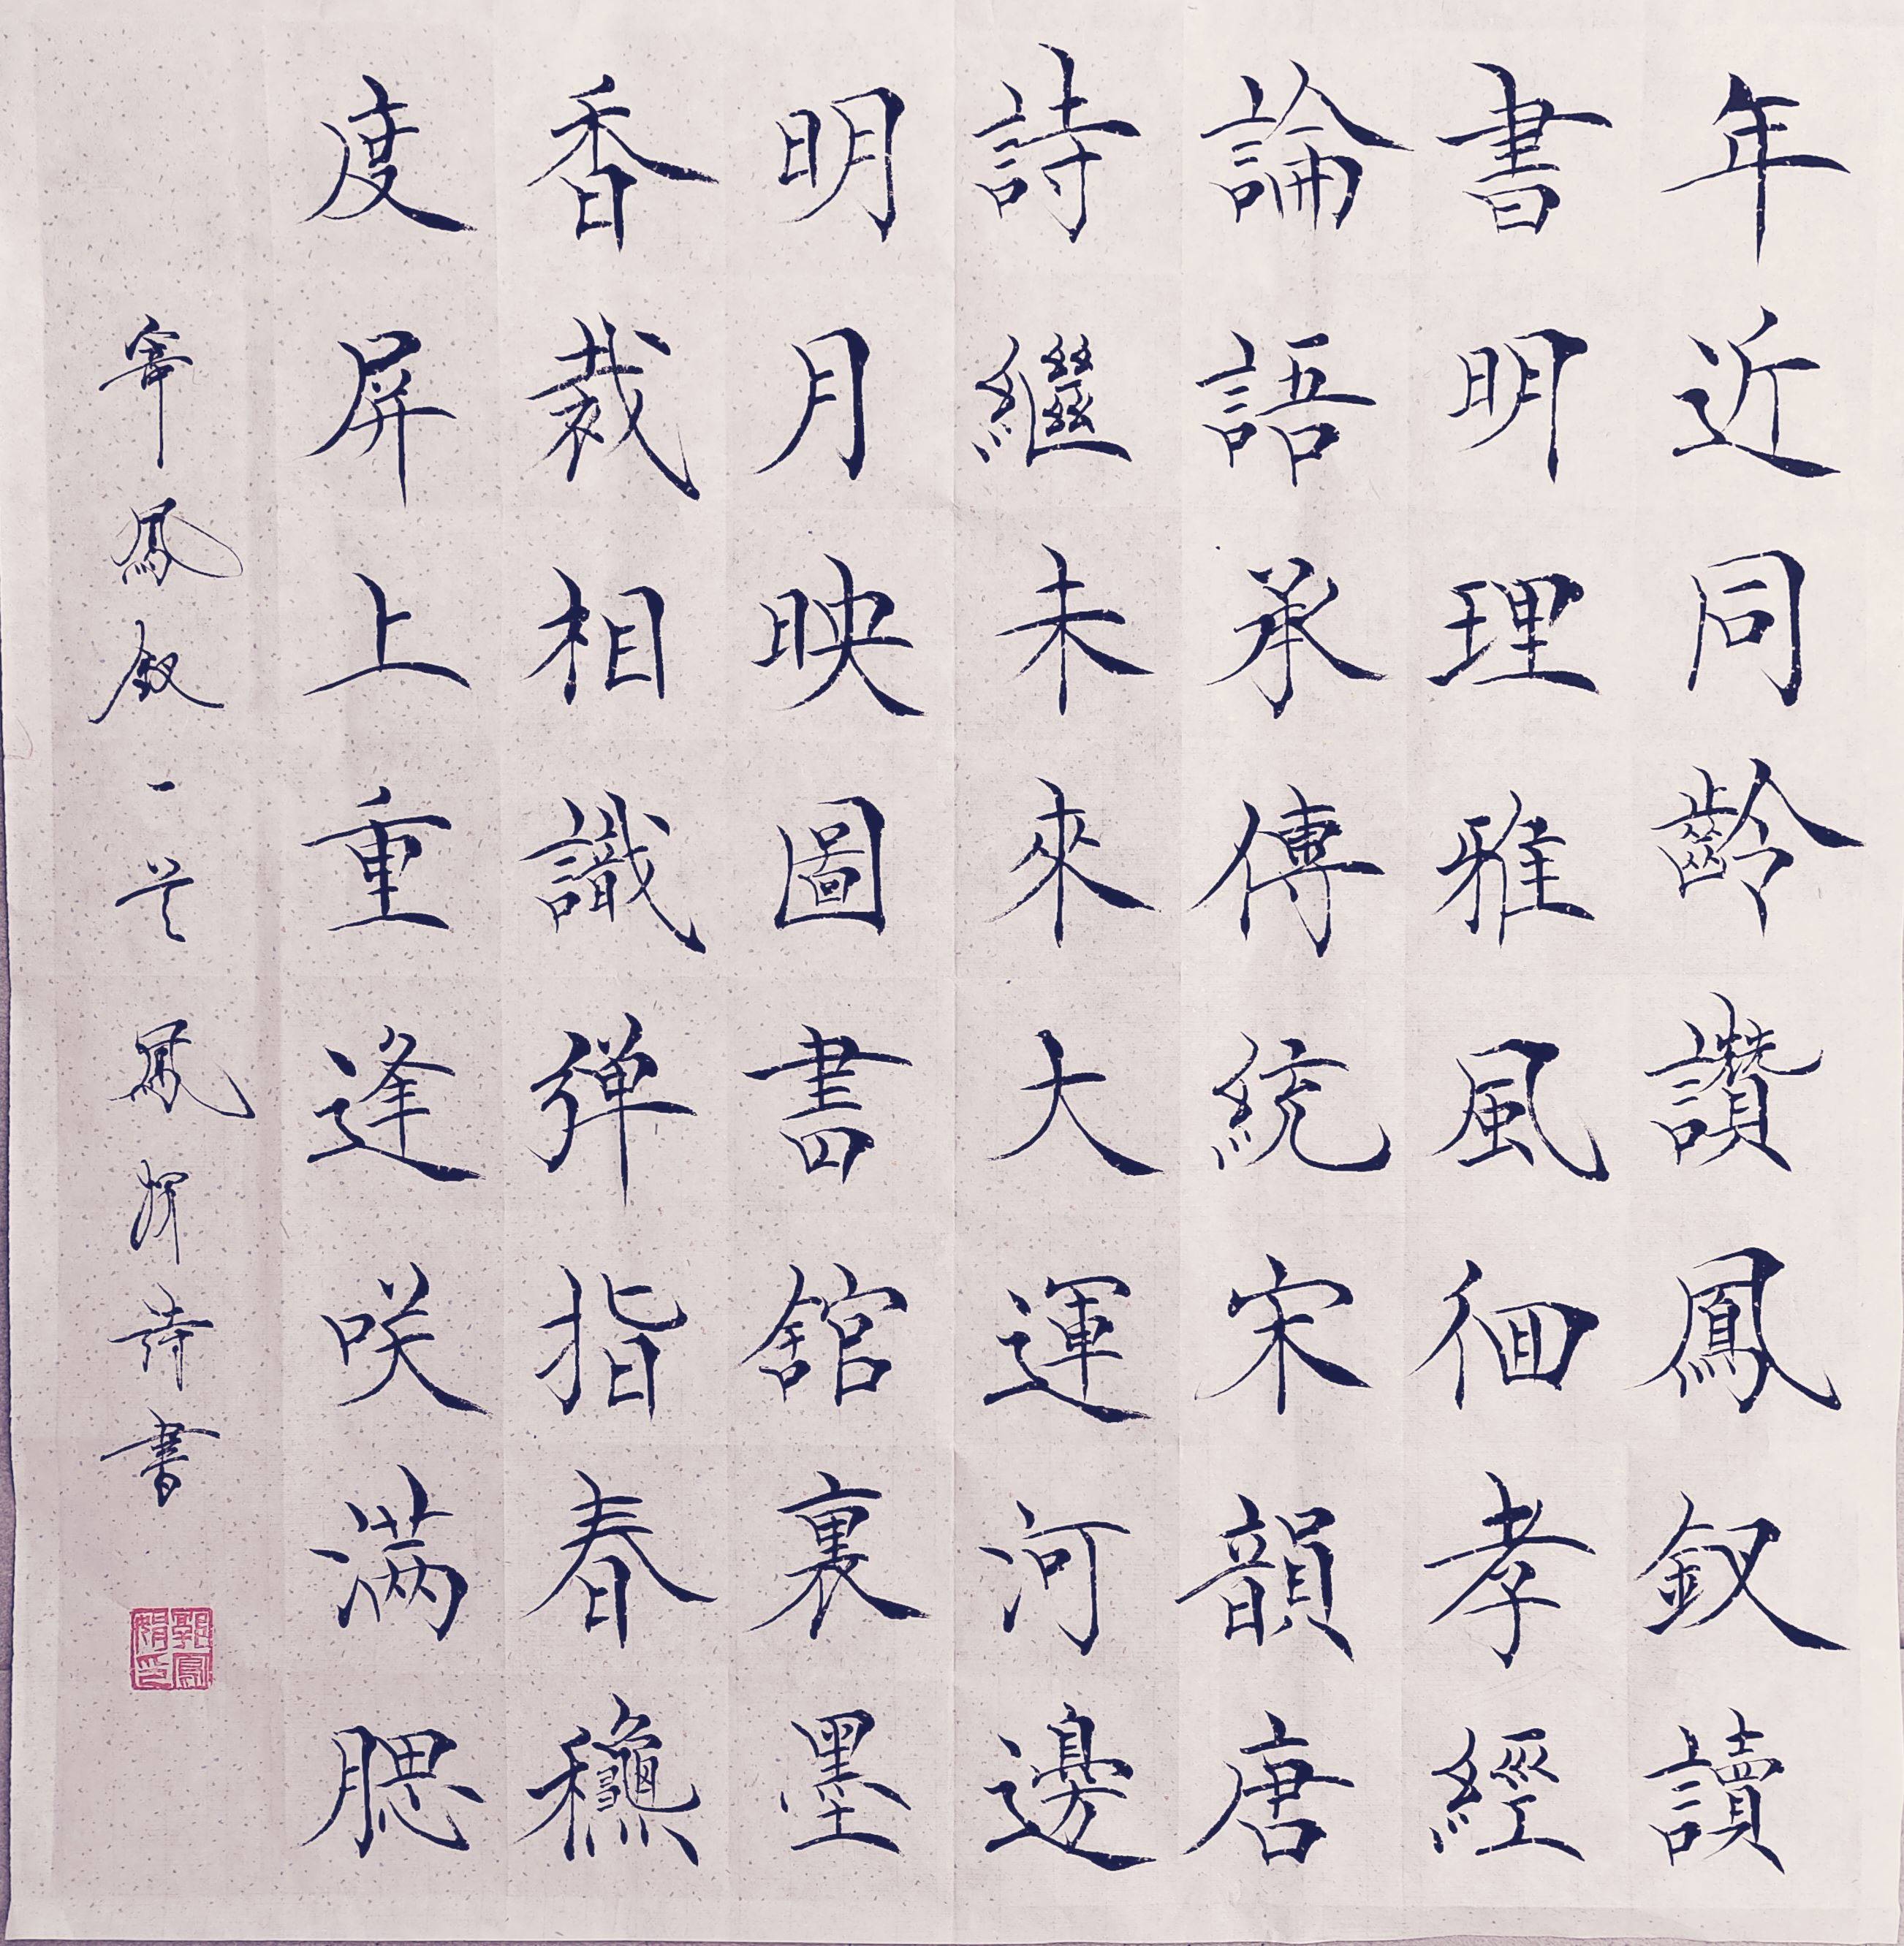 年近同齡讚鳳釵讀
書明理雅風徊孝經
論語承傳統宋韻唐
詩繼未來大運河邊
明月映圖書館裏墨
香裁相識彈指春龝
度屏上重逢咲滿腮
寄鳳釵一首 鳳娟詩書
郭鳳娟印